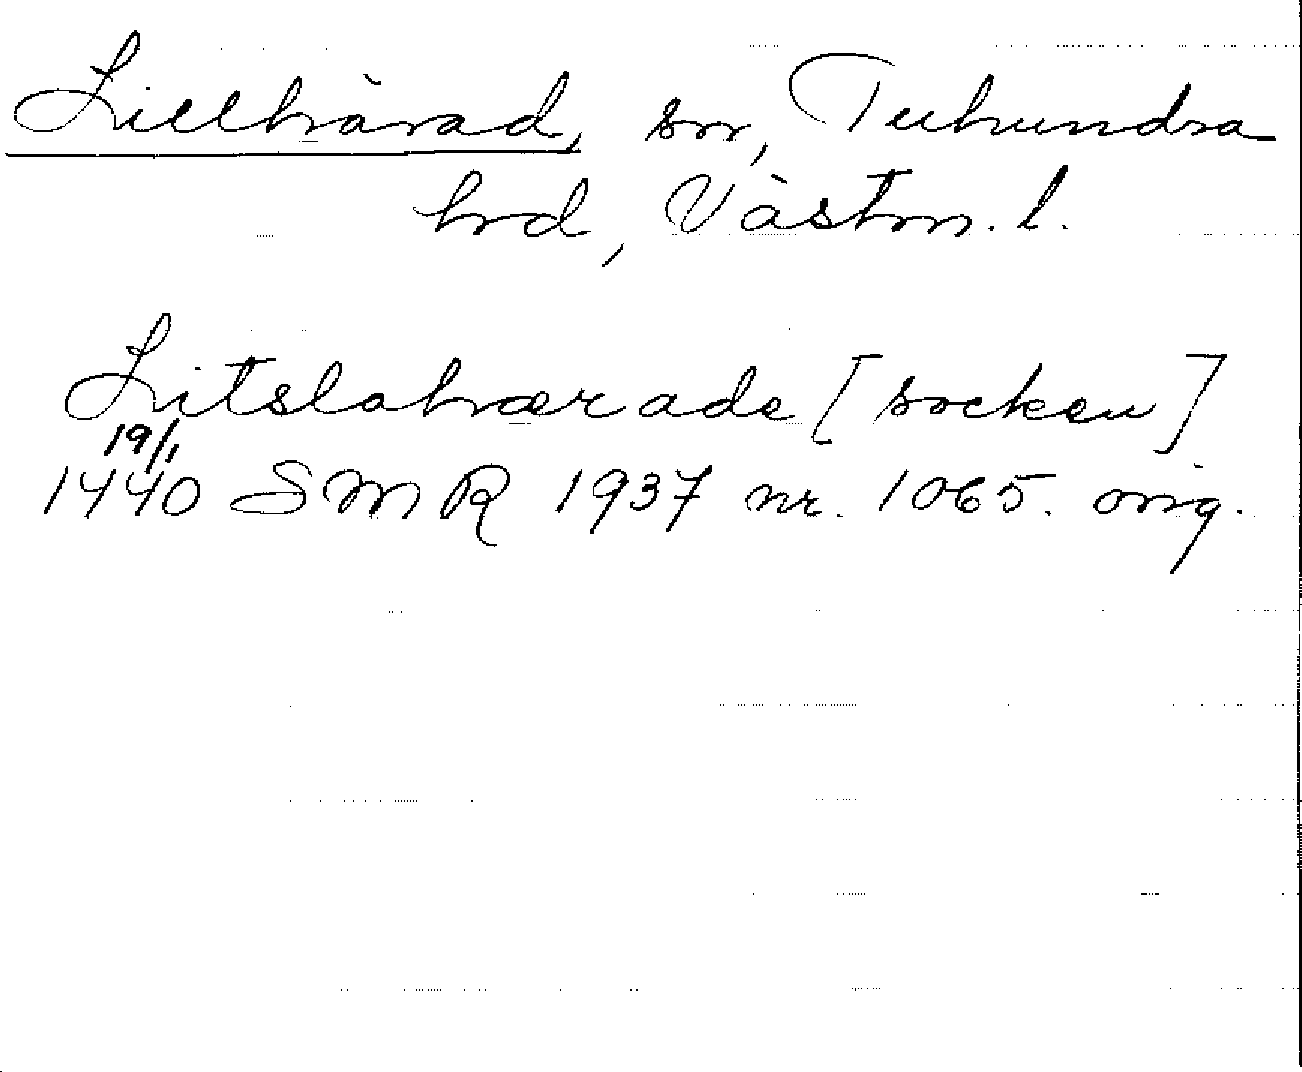 Lillhärad, sn, Tuhundra
hrd, Västm. l.
Litslahærade [socken]
19/1
1440 SMR 1937 nr. 1065. orig.